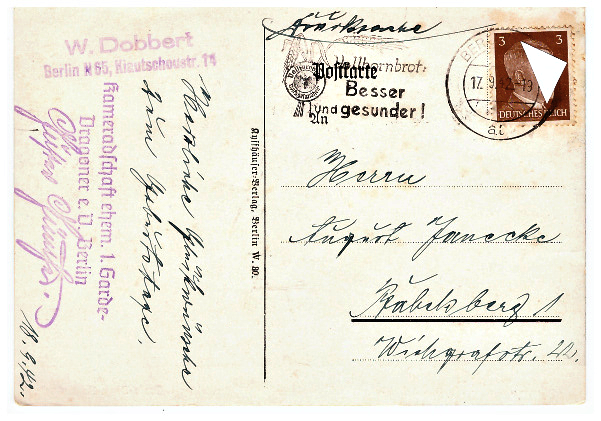 W. Dobbert
Berlin N 65, Kiautschoustr. 14
Kameradschaft ehem. 1. Garde-
Dragoner e.V. Berlin
Herzliche Glückwünsche
zum Geburtstage.
18.9.42.
Kyffhäuser-Verlag, Berlin W. 30.
Drucksache
Vollkornbrot:
Besser
und gesunder!
Postkarte
An
3 3
DEUTSCHES REICH
Herrn
August Janecke
Babelsberg 1
Wichgrafstr. 22.